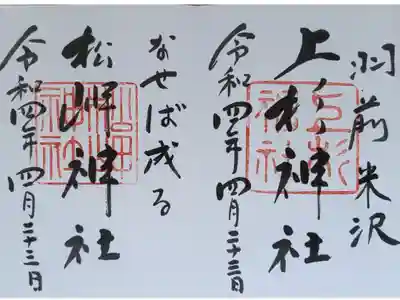 羽前米沢
上杉神社
令和四年四月二十三日
なせば成る
松岬神社
令和四年四月二十三日
上杉神社
松岬神社